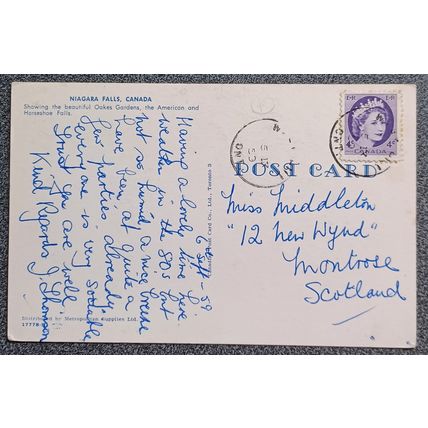 NIAGARA FALLS, CANADA
Showing the beautiful Oakes Gardens, the American and
Horseshoe Falls.
6 Sept - 59
Having a lovely time here.
Weather in the 80s but
not so humid a nice breeze
Have been at quite a
few parties already
everyone is very sociable
Trust you are well
Kind Regards J Thomson
Distributed by Metropolitan Supplies Ltd.
17778
Post Card Co., Ltd., Toronto
POST CARD
E II R
CANADA
4c
ONT
Miss Middleton
"12 New Wynd"
Montrose
Scotland